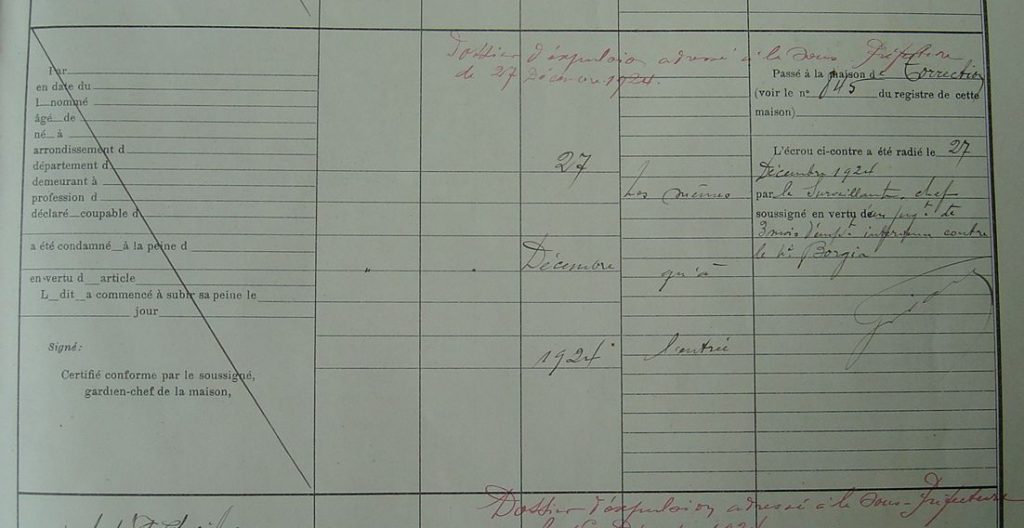 Dossier d'expulsion adressé à la sous Préfecture
de 27 Décembre 1924.
Par
en date du
l nommé
âgé de
né à
arrondissement d
département d
demeurant à
profession d
déclaré coupable d
a été condamné à la peine d
en vertu d article
L dit a commencé à subir sa peine le
jour
Signé:
Certifié conforme par le soussigné,
gardien-chef de la maison,
"
"
27
Décembre
1924
Les mêmes
qu'à
l'entrée
Passé à la maison de Correction
(voir le n° 845 du registre de cette
maison)
L'écrou ci-contre a été radié le 27
Décembre 1924
par le Surveillant chef
soussigné en vertu d'un jugt de
3 mois d'empt intervenu contre
le né Borgia
Dossier d'expulsion adressé à la Sous-Préfecture
Décembre 1924